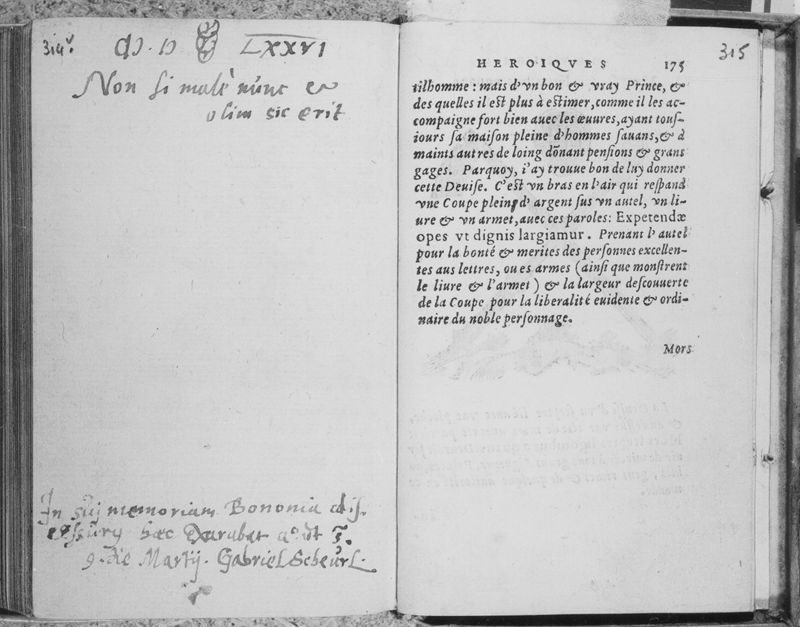 314v.
CIƆ. IƆ LXXVI
Non si malè nunc et
olim sic erit
In sui memoriam Bononia dis-
cessurus haec exarabat
9. die Martij. Gabriel Scheurl.
315
HEROIQVES 175
tilhomme : mais d'vn bon & vray Prince, &
des quelles il est plus à estimer, comme il les ac-
compaigne fort bien auec les œuures, ayant touſ-
iours ſa maiſon pleine d'hommes ſauans, & à
maints autres de loing dōnant penſions & grans
gages. Parquoy, i'ay trouue bon de luy donner
cette Deuiſe. C'est vn bras en l'air qui reſpand
vne Coupe pleine d'argent ſus vn autel, vn li-
ure & vn armet, auec ces paroles: Expetendæ
opes vt dignis largiamur. Prenant l'autel
pour la bonté & merites des perſonnes excellen-
tes aus lettres, ou es armes (ainſi que monſtrent
le liure & l'armet) & la largeur deſcouuerte
de la Coupe pour la liberalité euidente & ordi-
naire du noble perſonnage.
Mors